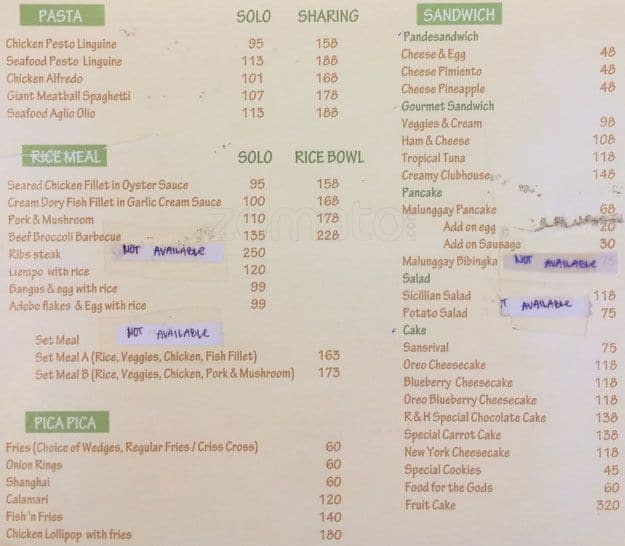 PASTA SOLO SHARING
Chicken Pesto Linguine 95 158
Seafood Pesto Linguine 113 188
Chicken Alfredo 101 168
Giant Meatball Spaghetti 107 178
Seafood Aglio Olio 113 188
RICE MEAL SOLO RICE BOWL
Seared Chicken Fillet in Oyster Sauce 95 158
Cream Dory Fish Fillet in Garlic Cream Sauce 100 168
Pork & Mushroom 110 178
Beef Broccoli Barbecue 135 228
Ribs steak NOT AVAILABLE 250
Liempo with rice 120
Bangus & egg with rice 99
Adobo flakes & Egg with rice 99
Set Meal NOT AVAILABLE
Set Meal A (Rice, Veggies, Chicken, Fish Fillet) 163
Set Meal B (Rice, Veggies, Chicken, Pork & Mushroom) 173
PICA PICA
Fries (Choice of Wedges, Regular Fries / Criss Cross) 60
Onion Rings 60
Shanghai 60
Calamari 120
Fish 'n Fries 140
Chicken Lollipop with fries 180
SANDWICH
Pandesandwich
Cheese & Egg 48
Cheese Pimiento 48
Cheese Pineapple 48
Gourmet Sandwich
Veggies & Cream 98
Ham & Cheese 108
Tropical Tuna 118
Creamy Clubhouse 148
Pancake
Malunggay Pancake 68
Add on egg 20
Add on Sausage 30
Malunggay Bibingka NOT AVAILABLE 75
Salad
Sicillian Salad 118
AVAILABLE
Potato Salad 75
Cake
Sansrival 75
Oreo Cheesecake 118
Blueberry Cheesecake 118
Oreo Blueberry Cheesecake 118
R & H Special Chocolate Cake 138
Special Carrot Cake 138
New York Cheesecake 118
Special Cookies 45
Food for the Gods 60
Fruit Cake 320
zomato